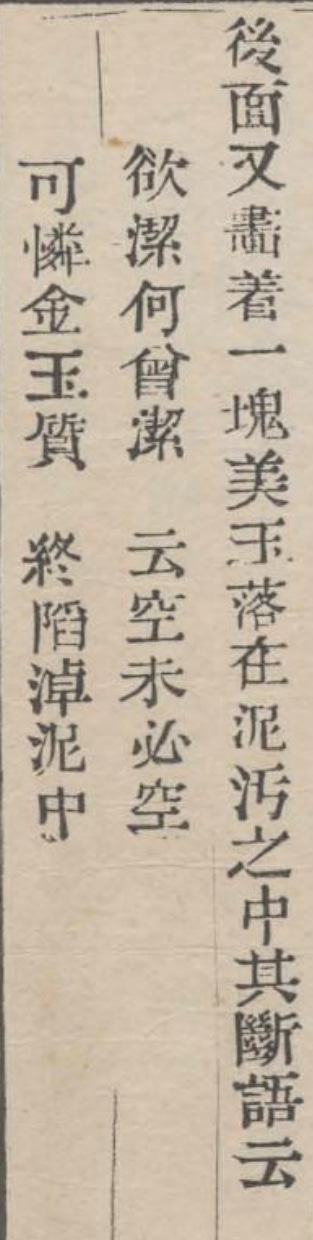 後面又畵着一塊美玉落在泥汚之中其斷語云
欲潔何曾潔　云空未必空
可憐金玉質　終陷淖泥中